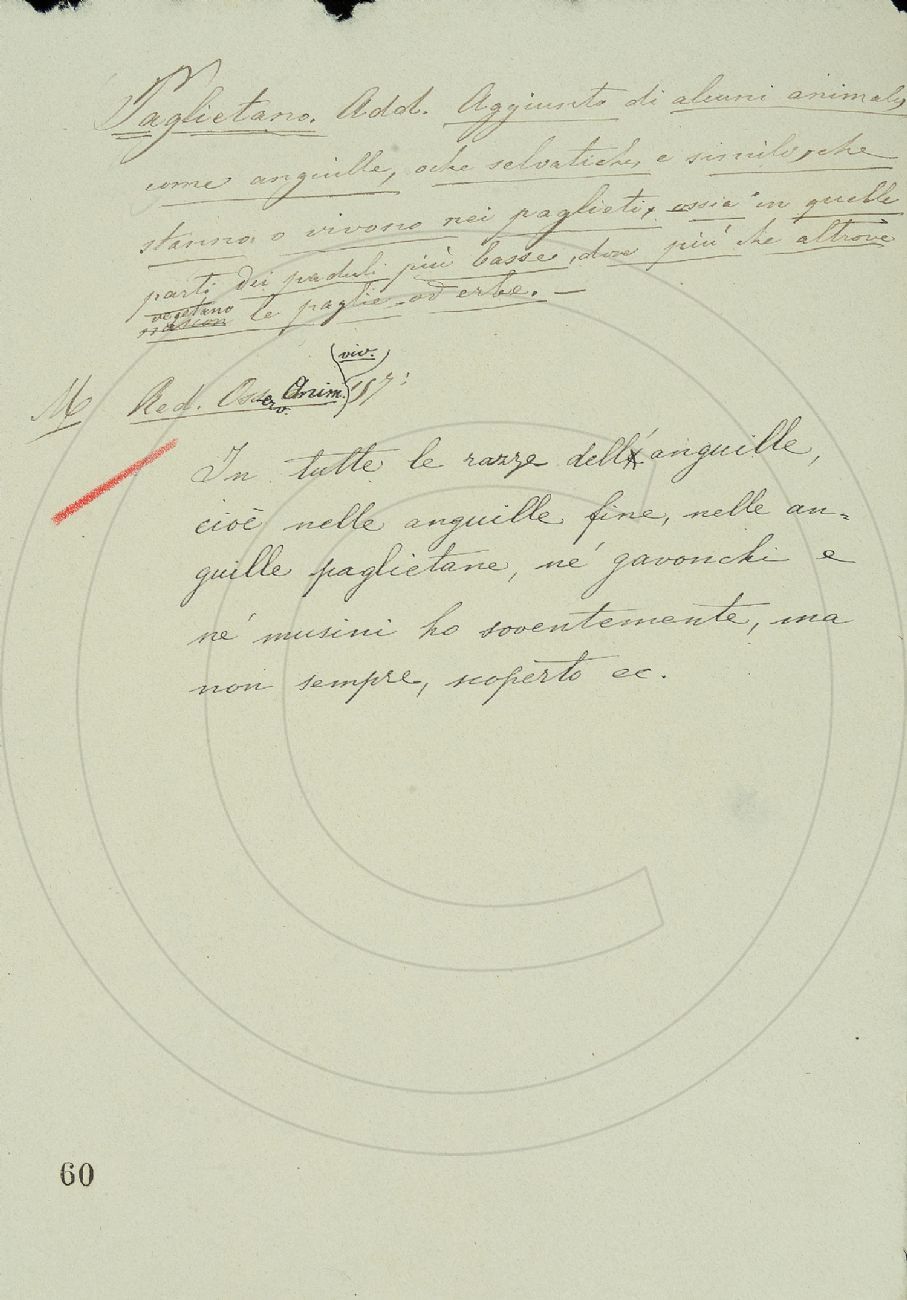 Paglietano. Add. Aggiunto di alcuni animali,
come anguille, oche selvatiche, e simili, che
stanno o vivono nei paglieti, ossia in quelle
parti dei paduli più basse, dove più che altrove
vegetano
nascon le paglie od erbe. —
(viv.)
M Red. Osserv. Anim. 157:
In tutte le razze dell' anguille,
cioè nelle anguille fine, nelle an=
guille paglietane, né gavonchi e
né musini ho soventemente, ma
non sempre, scoperto ec.
60